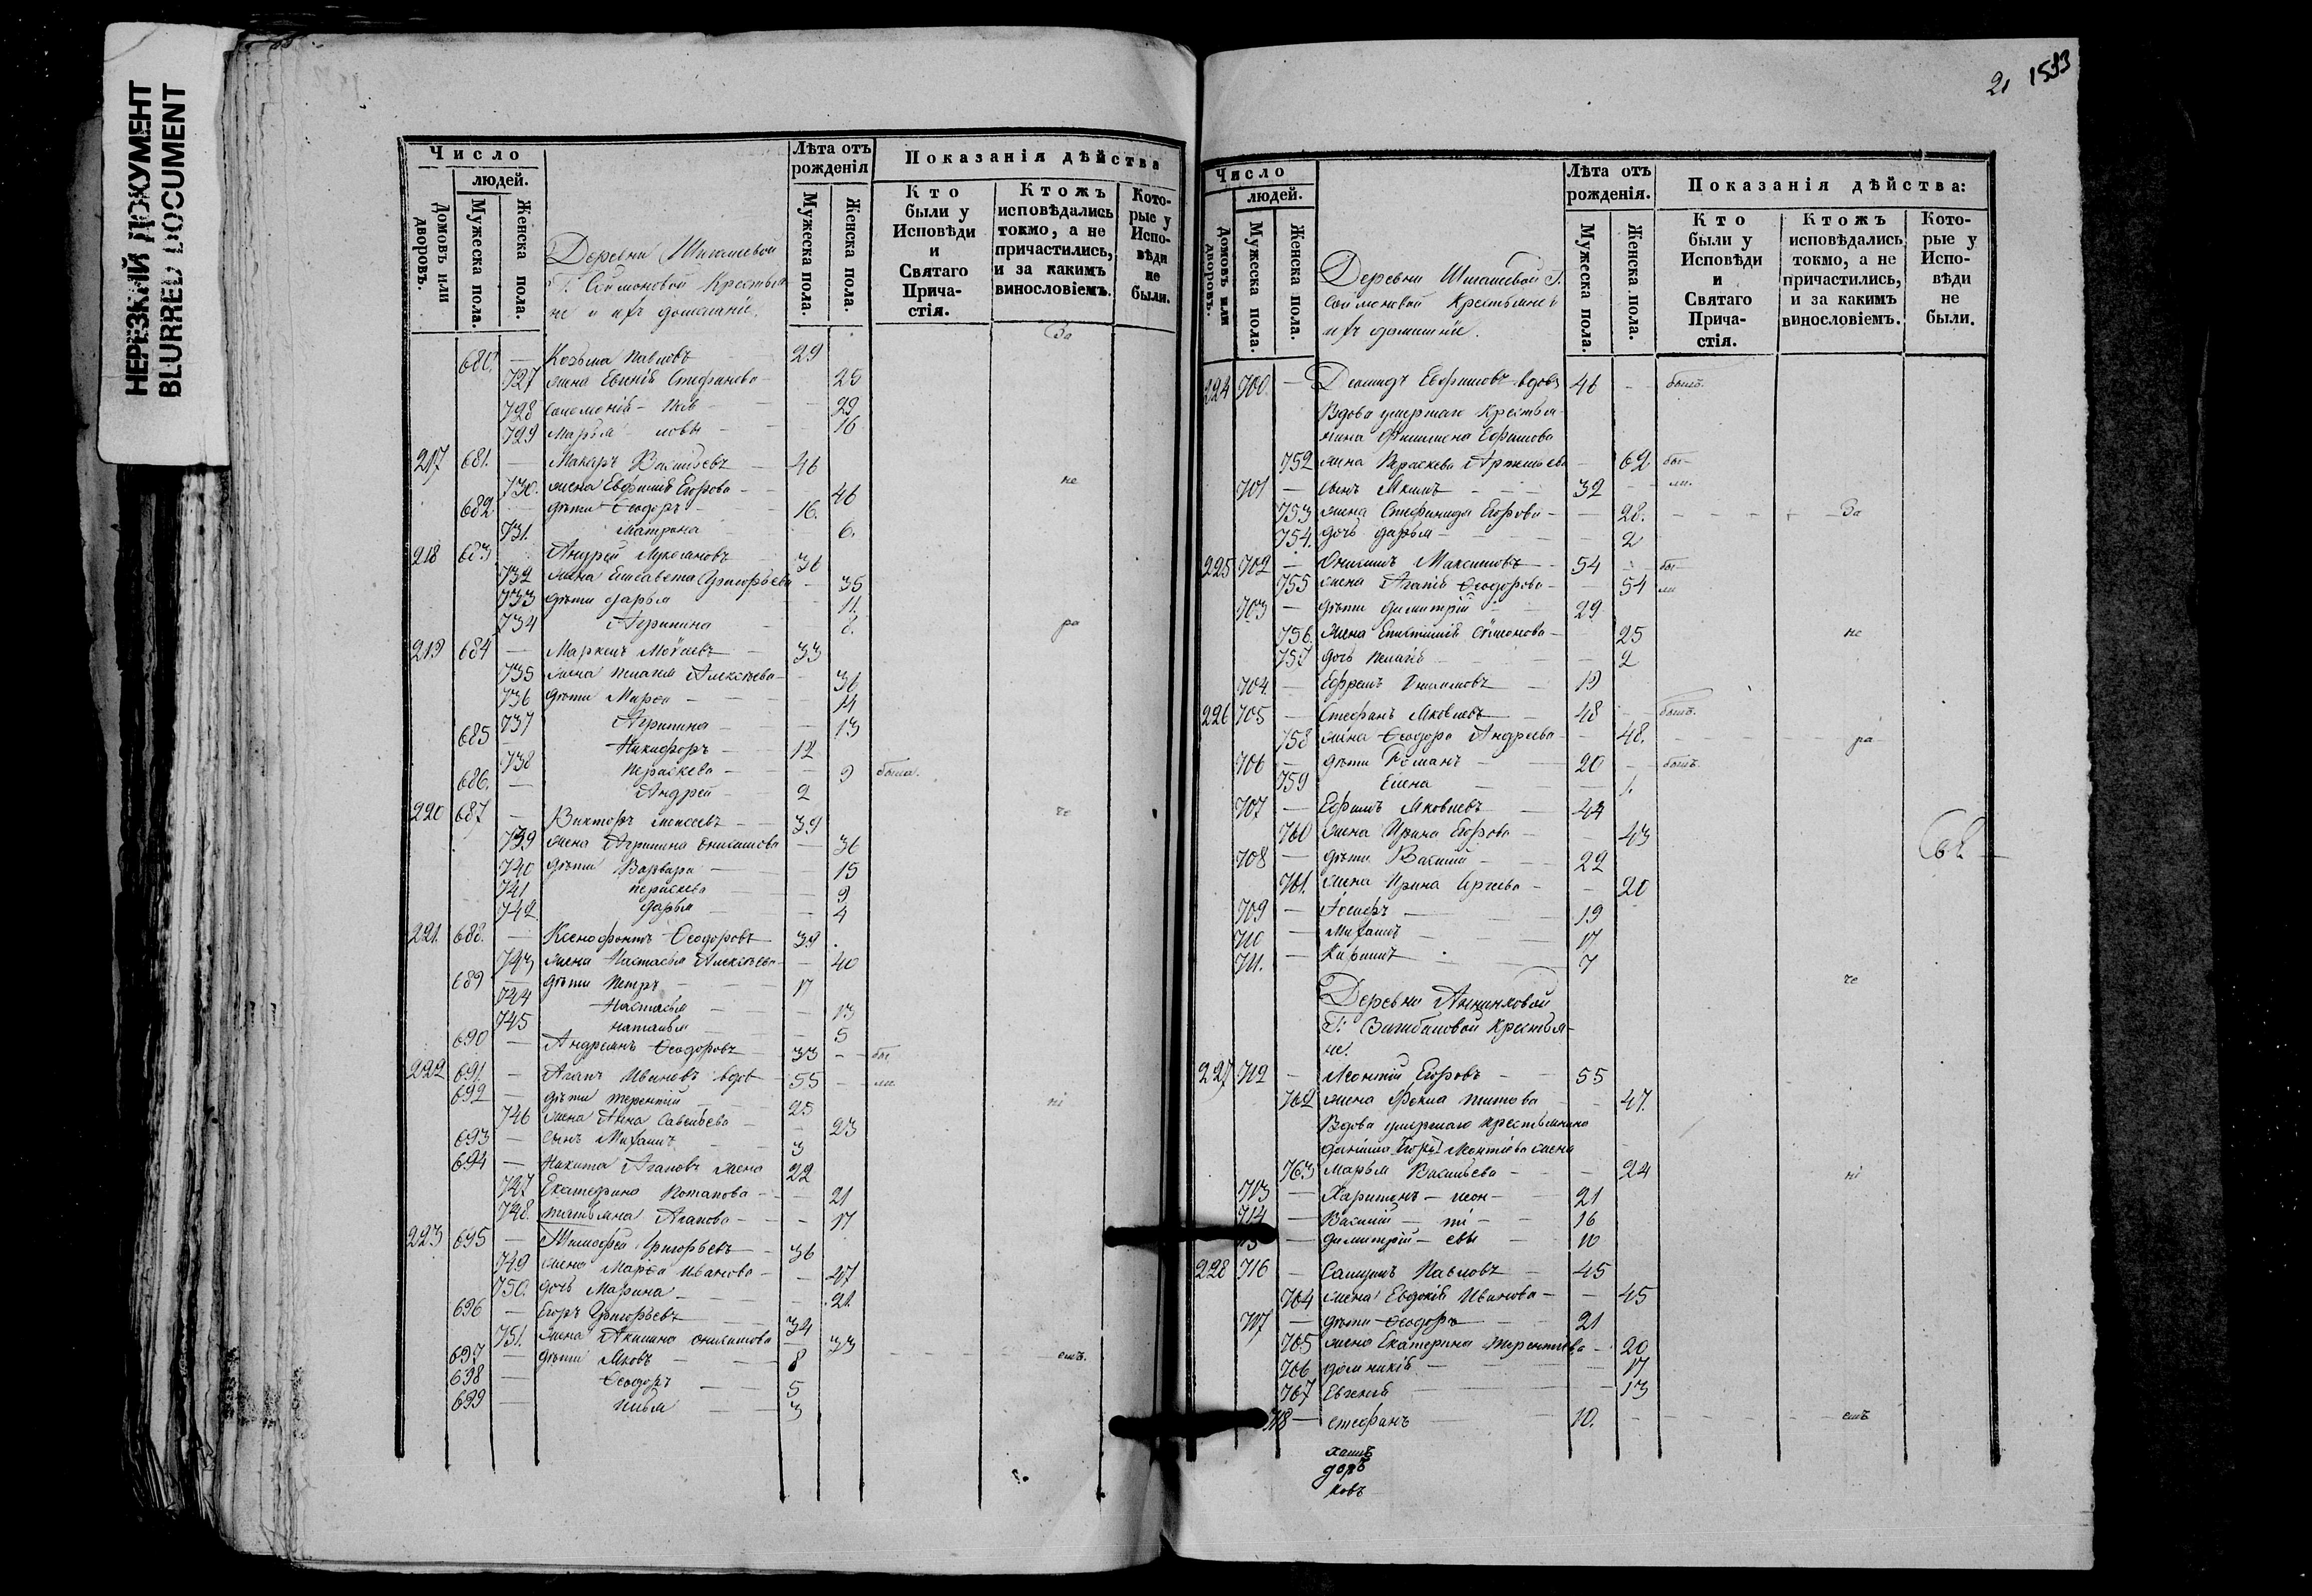 НЕРЕЗКИЙ ДОКУМЕНТ
BLURRED DOCUMENT
Число
людей.
Домовъ или дворовъ.
Мужеска пола.
Женска пола.
Деревни
Г. Соймоновой Крестья
не и ихъ домашніе.
Лѣта отъ рожденія
Мужеска пола.
Женска пола.
Показанія дѣйства
Кто были у Исповѣди и Святаго Прича-стія.
Ктожъ исповѣдались токмо, а не причастились, и за какимъ винословіемъ.
Кото-рые у Испо-вѣди не были.
За
680. — Козьма Павловъ 29
727 жена Евгенія Стефанова 25
728 Соломонія — Пав 29
729 Марья — ловы 16
217 681. — Макаръ Васильевъ 46
730. жена Евфимія Егорова 46 не
682 — дѣти Ѳеодоръ 16.
731. Матрона 6.
218 683 Андрей 36
732 жена Елисавета Григорьева 35
733 дѣти Дарья 11.
734 Агрипина 8. ра
219 684 — Маркелъ 33
735 жена Пелагея Алексѣева 36
736 дѣти Марѳа 14
737 Агрипина 13
685 — Никифоръ 12
738 Параскева 9 была.
686. — Андрей 2
220 687 — Викторъ Моисеевъ 39 че
739 жена Агрипина Онисимова 36
740 дѣти Варвара 15
741 Параскева 9
742 Дарья 4
221. 688. — Ксенофонтъ Ѳеодоровъ 39
743 жена Настасья Алексѣева 40
689 — дѣти Петръ 17
744 Настасья 13
745 Наталья 5
690 — Андреянъ Ѳеодоровъ 33 бы
222 691. — Агапъ Ивановъ вдов 55 ли.
692 — дѣти Терентій 25 ні
746 жена Анна Савельева 23
693 — сынъ Михаилъ 3
694 — Никита Агаповъ жена 22
747 Екатерина Потапова 21
748. Татьяна Агапова 17
223 695 — Тимоѳей Григорьевъ 36
749 жена Марѳа Иванова 47
750. дочь Марина 21.
696 — Егоръ Григорьевъ 34
751. жена Акилина Онисимова 33
697 — дѣти Яковъ 8 емъ.
698 — Ѳеодоръ 5
699 — Илья 3
21 1533
Число
людей.
Домовъ или дворовъ.
Мужеска пола.
Женска пола.
Деревни Г.
Соймоновой Крестьяне и
ихъ домашніе.
Лѣта отъ рожденія.
Мужеска пола.
Женска пола.
Показанія дѣйства:
Кто были у Исповѣди и Святаго Прича-стія.
Ктожъ исповѣдались токмо, а не причастились, и за какимъ винословіемъ.
Кото-рые у Испо-вѣди не были.
224 700. — Евфимовъ вдовъ 46 былъ.
Вдова умершаго Крестья-
нина Филимона Ефимова
752 жена Параскева Артемьева 62 бы-
701 — сынъ Акимъ 32 ли.
753 жена Стефанида Егорова 28. За
754. дочь Дарья 2
225 702 — Онисимъ Максимовъ 54 бы
755 жена Агапія Ѳеодорова 54 ли
703 — дѣти Димитрій 29
756. жена Епистимія 25 не
757 дочь Пелагія 2
704. — Ефремъ Онисимовъ 19
226 705 — Стефанъ Яковлевъ 48 былъ.
758 жена Ѳеодора Андреева 48. ра
706 — дѣти Романъ 20 былъ.
759 Елена 1.
707 — Ефимъ Яковлевъ 44
760 жена Ирина Егорова 43
708 — дѣти Василій 22
761. жена Ирина Сергеева 20
709 — Іосифъ 19
710 — Михаилъ 17
711. — Кирилъ 7
че
Деревни
Г. Крестья-
не.
227 712 — Леонтій Егоровъ 55
762 жена Фекла Титова 47.
Вдова умершаго крестьянина
Даніила Леонтіева жена
763 Марья Васильева 24 ні
713 — Харитонъ — Леон 21
714 — Василій — ті 16
715 — Димитрій — евы 10
228 716 — Самуилъ Павловъ 45
764 жена Евдокія Иванова 45
717 — дѣти Ѳеодоръ 21
765 жена Екатерина Терентіева 20
766 Домникія 17
767 Евгенія 13
718 — Стефанъ 10. емъ